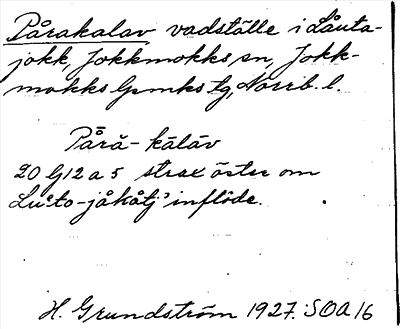 Pårakalav vadställe i Låuta-
jokk, Jokkmokks sn, Jokk-
mokks lpmks tg, Norrb. l.
Pårā-kālāv
20 G12 a 5 strax öster om
Lůto-jåkåtj' inflöde.
H. Grundström 1927. SOA 16